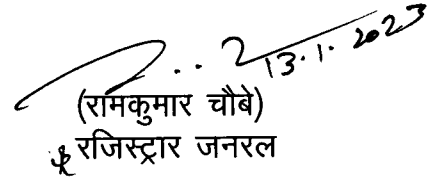 13.1.2023
(रामकुमार चौबे)
रजिस्ट्रार जनरल